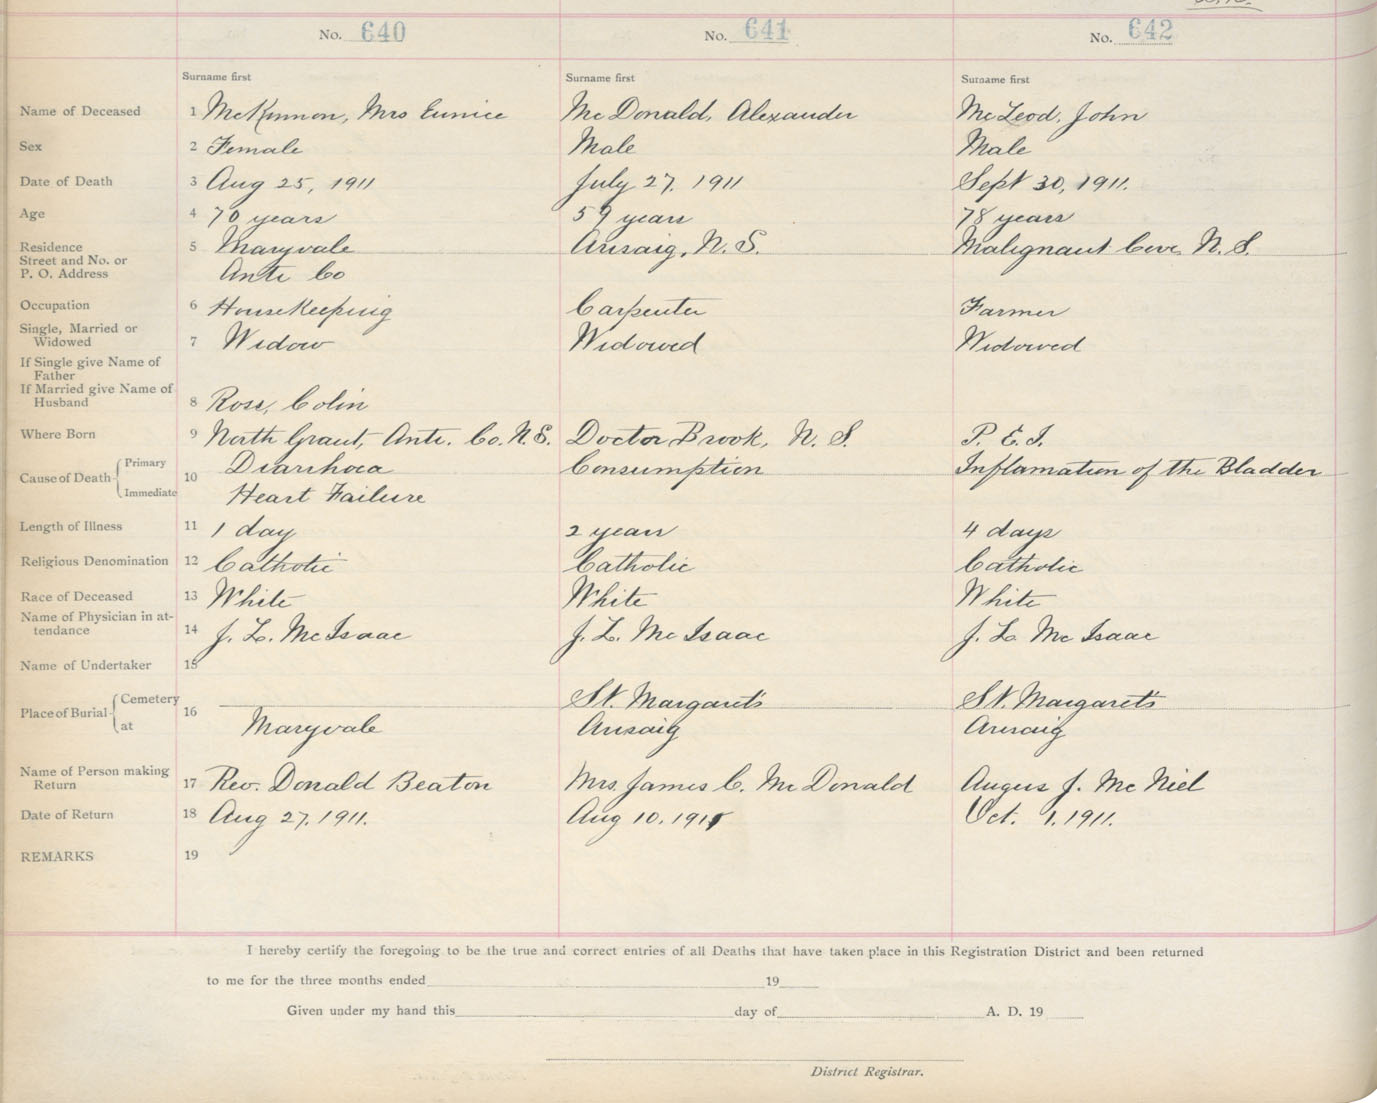 No. 640 No. 641 No. 642
Surname first Surname first Surname first
Name of Deceased 1 McKinnon, Mrs Eunice Mc Donald, Alexander McLeod, John
Sex 2 Female Male Male
Date of Death 3 Aug 25, 1911 July 27, 1911 Sept 30, 1911.
Age 4 70 years 59 years 78 years
Residence 5 Maryvale Arisaig, N. S. Malignant Cove, N. S.
Street and No. or
P. O. Address Anti Co
Occupation 6 HouseKeeping Carpenter Farmer
Single, Married or
Widowed 7 Widow Widowed Widowed
If Single give Name of
Father
If Married give Name of
Husband 8 Ross, Colin
Where Born 9 North Grant, Anti. Co. N.S. Doctor Brook, N. S. P. E. I.
Primary Diarrhoea Consumption Inflamation of the Bladder
Cause of Death 10
Immediate Heart Failure
Length of Illness 11 1 day 2 years 4 days
Religious Denomination 12 Catholic Catholic Catholic
Race of Deceased 13 White White White
Name of Physician in at-
tendance 14 J. L. McIsaac J. L. Mc Isaac J. L. Mc Isaac
Name of Undertaker 15
Cemetery St. Margaret's St. Margaret's
Place of Burial 16
at Maryvale Arisaig Arisaig
Name of Person making
Return 17 Rev. Donald Beaton Mrs. James C. McDonald Angus J. McNiel
Date of Return 18 Aug 27, 1911. Aug 10, 1911 Oct. 1, 1911.
REMARKS 19
I hereby certify the foregoing to be the true and correct entries of all Deaths that have taken place in this Registration District and been returned
to me for the three months ended 19
Given under my hand this day of A. D. 19
District Registrar.